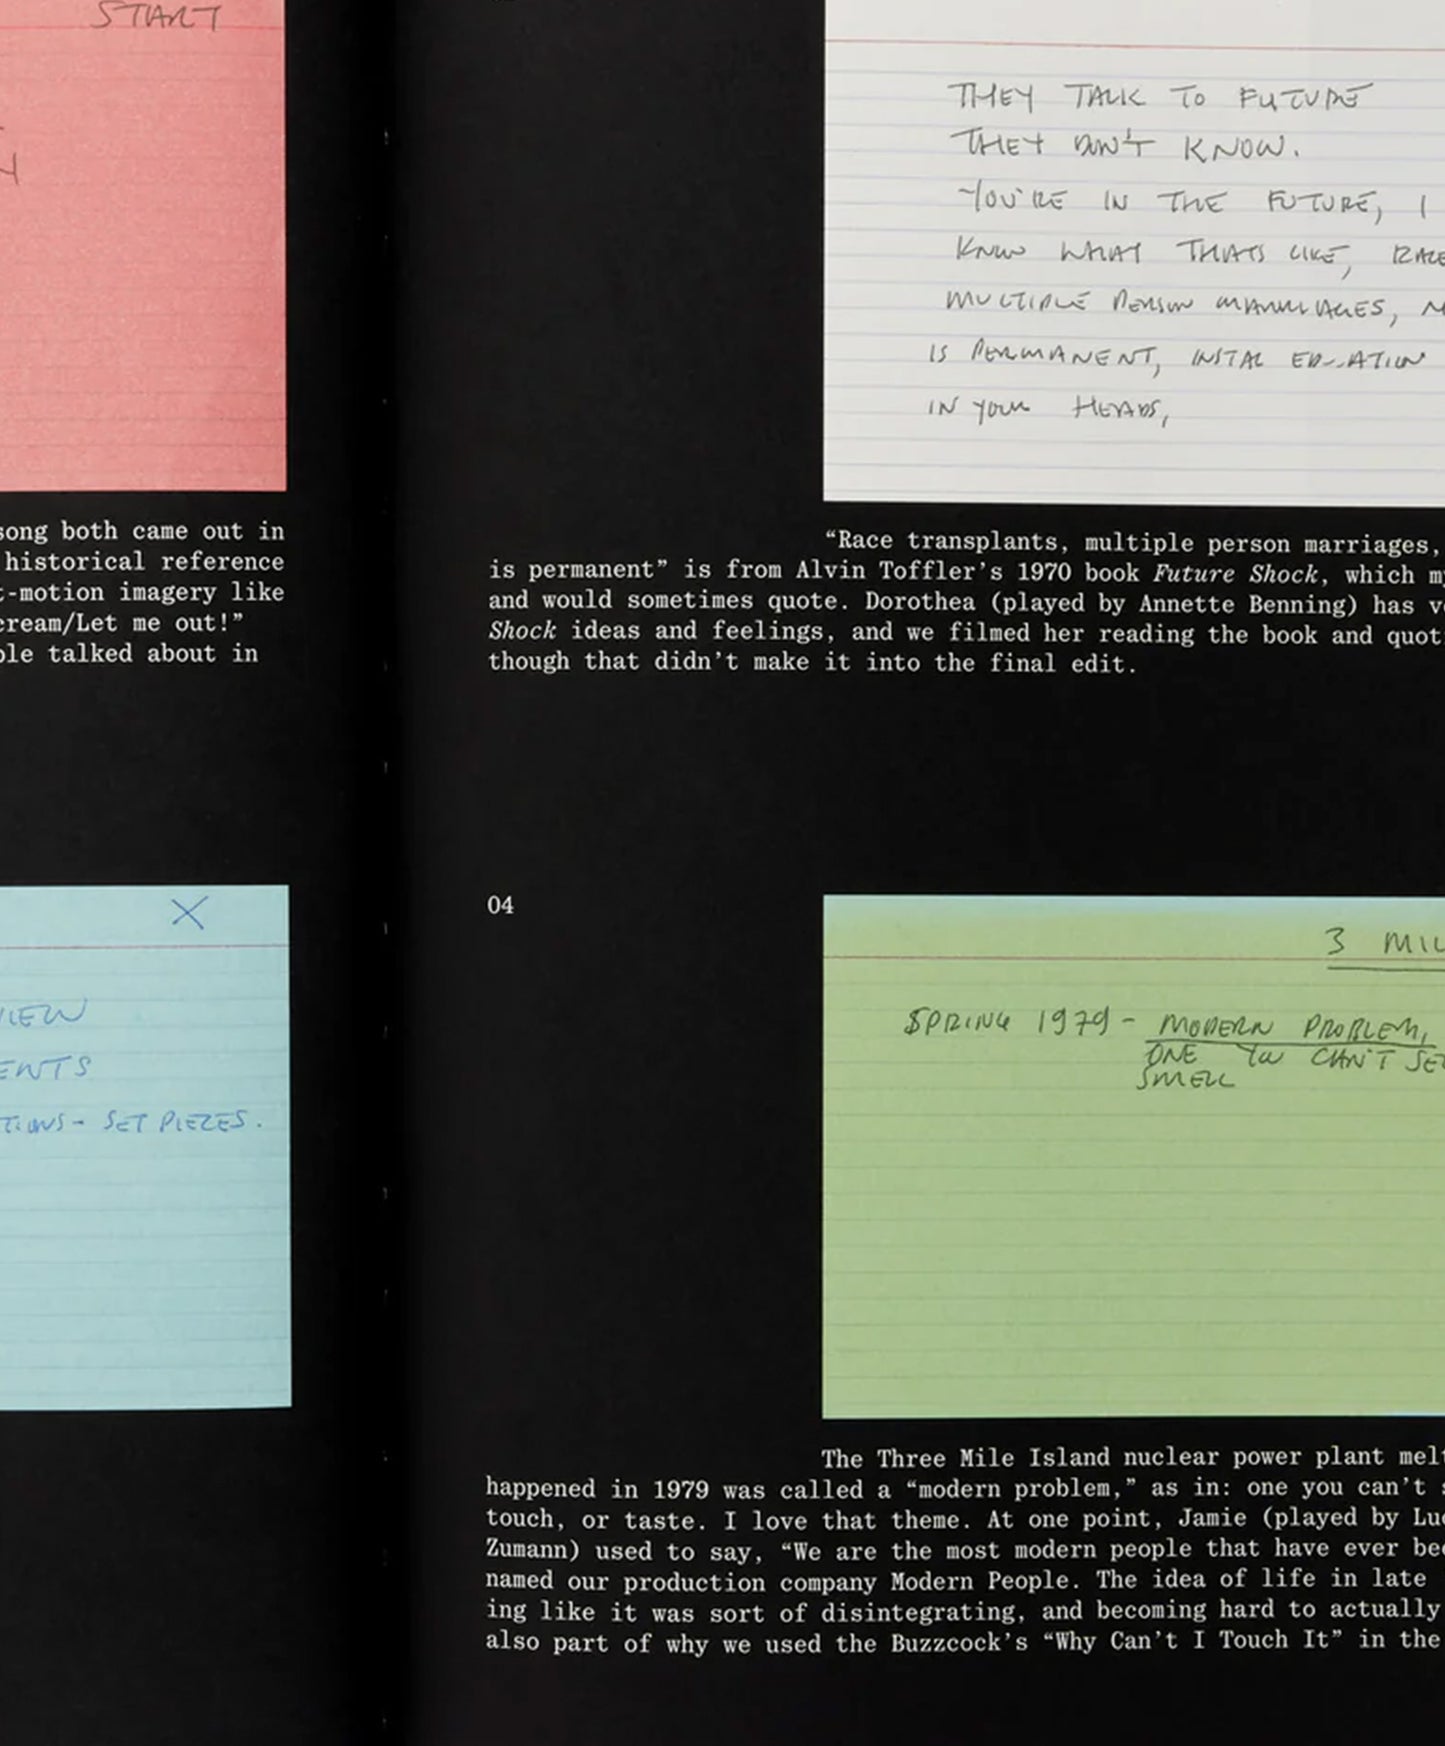 START
song both came out in
historical reference
-motion imagery like
cream/Let me out!”
ple talked about in
X
VIEW
ENTS
TIONS- SET PIECES.
THEY TALK TO FUTURE
THEY DON'T KNOW.
YOU'RE IN THE FUTURE, I
KNOW WHAT THATS LIKE, RACE
MULTIPLE PERSON MARRIAGES,
IS PERMANENT, INSTAL
IN YOUR HEADS,
“Race transplants, multiple person marriages,
is permanent” is from Alvin Toffler’s 1970 book Future Shock, which m
and would sometimes quote. Dorothea (played by Annette Benning) has v
Shock ideas and feelings, and we filmed her reading the book and quot
though that didn’t make it into the final edit.
04
3 MIL
SPRING 1979 - MODERN PROBLEM,
ONE YOU CAN'T SEE
SMELL
The Three Mile Island nuclear power plant mel
happened in 1979 was called a “modern problem,” as in: one you can’t s
touch, or taste. I love that theme. At one point, Jamie (played by Luc
Zumann) used to say, “We are the most modern people that have ever bee
named our production company Modern People. The idea of life in late
ing like it was sort of disintegrating, and becoming hard to actually
also part of why we used the Buzzcock’s “Why Can’t I Touch It” in the